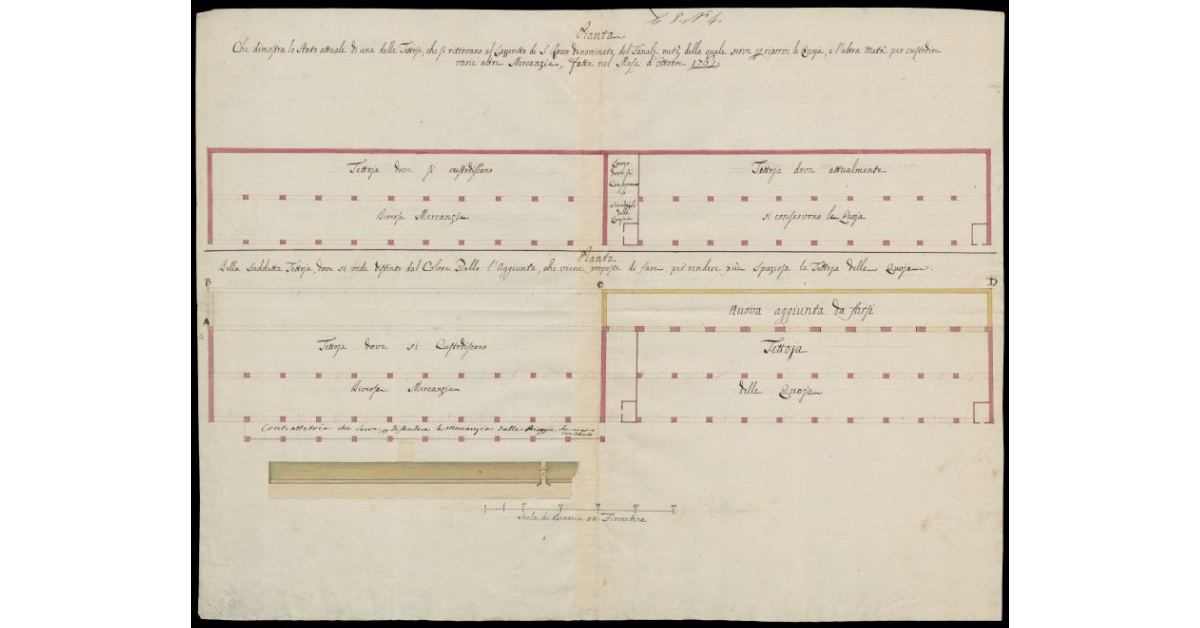 C 8. N° 4.
Pianta
Che dimostra lo Stato attuale di una delle Tettoje, che si ritrovano al Lazzeretto di S. Rocco denominata del Fanale, metà della quale serve per riporvi le Quoja, e l'altra Metà per custodire
varie altre Mercanzie, fatta nel Mese d'Ottobre
Tettoja dove si custodiscono
Diverse Mercanzie
dove si
delle
Quoja
Tettoja dove attualmente
si conservono le Quoja
Pianta
Della Suddetta Tettoja, dove si vede distinto dal Colore Giallo l'Aggiunta, che viene proposta di fare, per rendere più Spaziosa la Tettoja delle Quoja
B
C
D
A
Nuova aggiunta da farsi
Tettoja dove si Custodiscono
Diverse Mercanzie
Tettoja
delle Quoja
Contrattetoia che serve per difendere le mercanzie dalle Pioggie
Scala di Braccia Fiorentine